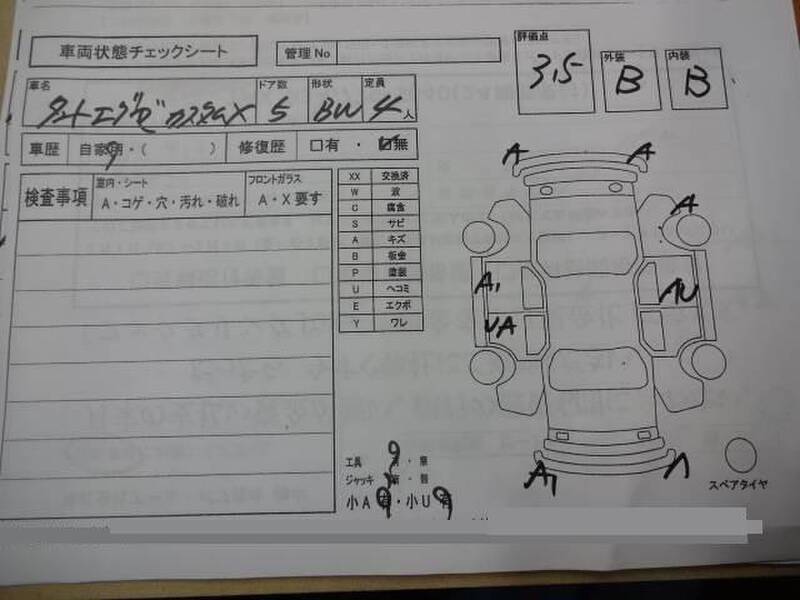 車両状態チェックシート
管理No
評価点
3,5
外装
B
内装
B
車名
タントエグゼカスタムX
ドア数
5
形状
BW
定員
4人
車歴
自家用・( )
修復歴
□有・☑無
検査事項
室内・シート
A・コゲ・穴・汚れ・破れ
フロントガラス
A・X要す
XX 交換済
W 波
C 腐食
S サビ
A キズ
B 板金
P 塗装
U ヘコミ
E エクボ
Y ワレ
A
A
A
A1
AU
UA
A1
工具 有・無
ジャッキ 有・無
小A有・小U有
スペアタイヤ